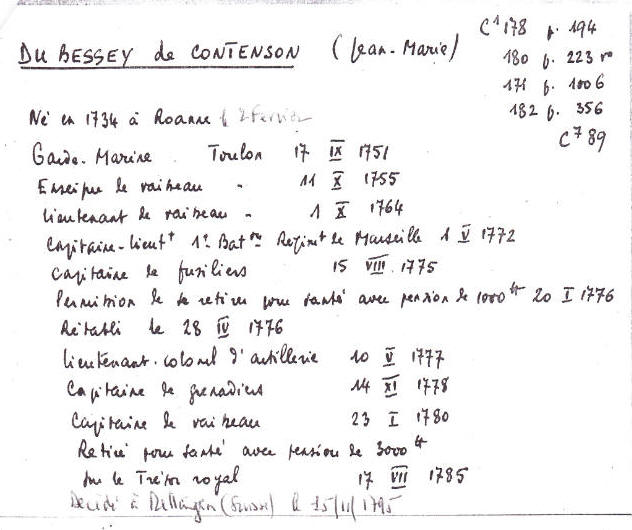 DU BESSEY de CONTENSON (Jean-Marie)
C¹ 178 f. 194
180 f. 223 rº
171 f. 1006
182 f. 356
C⁷ 89
Né en 1734 à Roanne 2 Février
Garde-Marine Toulon 17 IX 1751
Enseigne de vaisseau - 11 X 1755
Lieutenant de vaisseau - 1 X 1764
Capitaine-Lieutᵗ 1ᵉʳ Batᵒⁿ Regimᵗ de Marseille 1 V 1772
Capitaine de fusiliers 15 VIII 1775
Permission de se retirer pour santé avec pension de 1000ᵗᵗ 20 I 1776
Rétabli le 28 IV 1776
Lieutenant-colonel d'artillerie 10 V 1777
Capitaine de grenadiers 14 XI 1778
Capitaine de vaisseau 23 I 1780
Retiré pour santé avec pension de 3000ᵗᵗ
sur le Trésor royal 17 VII 1785
Décédé à (Suisse) le 15/11/1795